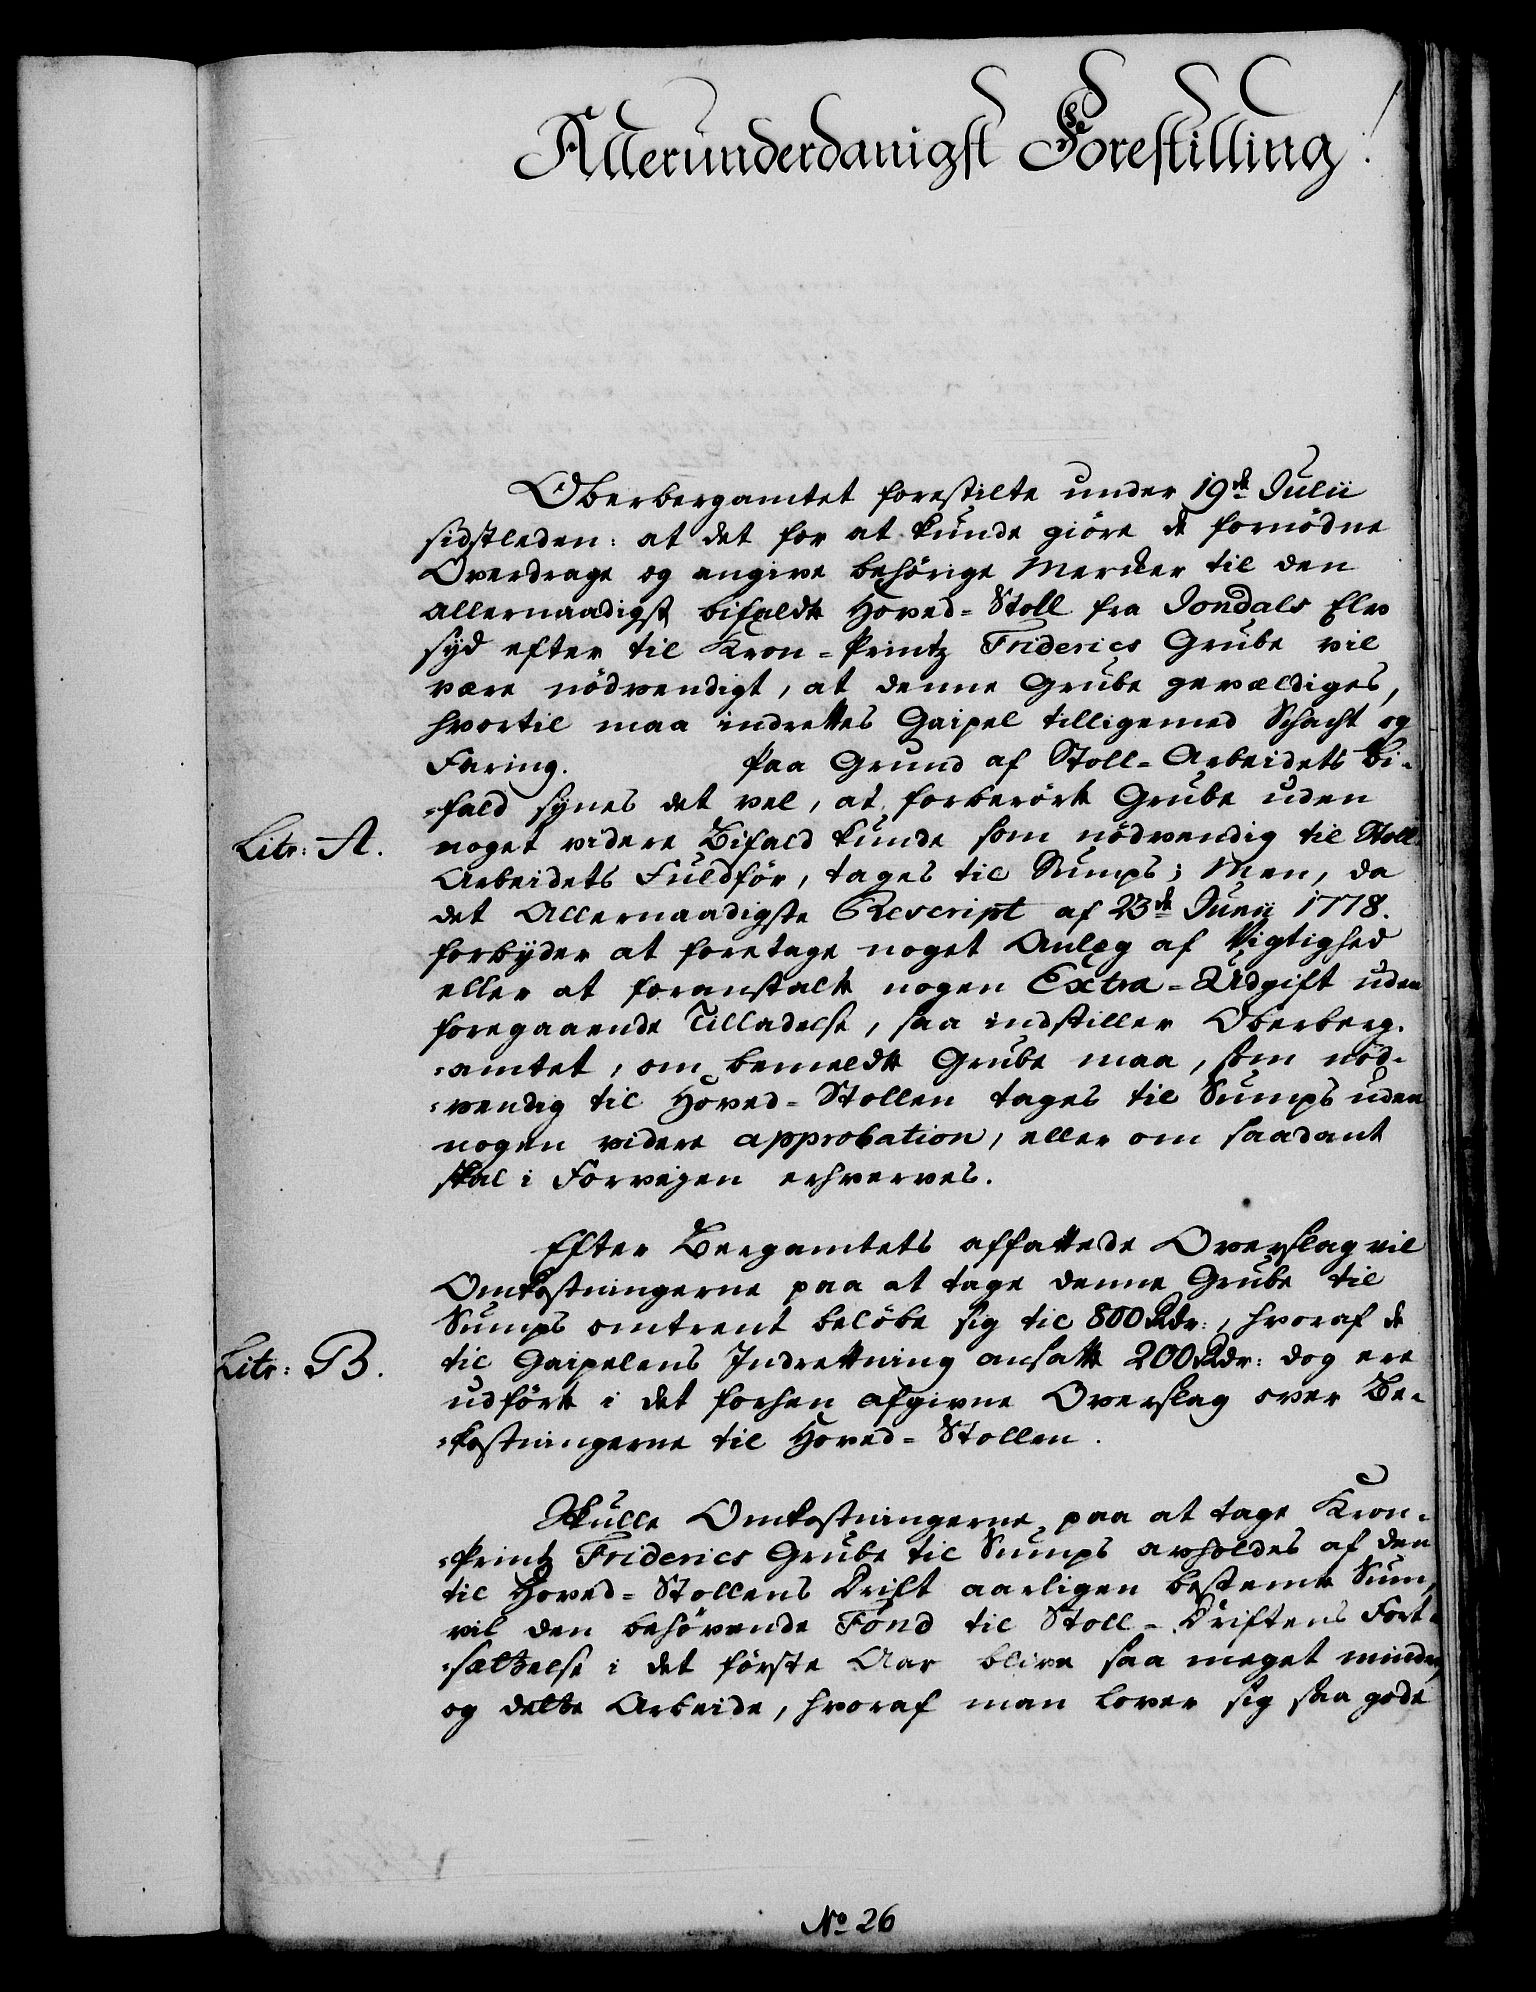 Allerunderdanigst Forestilling!
Oberbergamtet forestilte under 19de Julii
sidstleden: at det for at kunde giöre de fornødne
Overdrage og angive behörige Mercker til den
allernaadigst bifaldte Hoved-Stoll fra Jondals Elv
syd efter til Kron-Printz Friderics Grube vil
være nödvendigt, at denne Grube gevældiges,
hvortil maa indrettes Gaipel tilligemed Schacht og
Faring. Paa Grund af Stoll-Arbeidets Bi-
-fald synes det vel, at forberörte Grube uden
Litr: A.
noget videre Bifald kunde som nödvendig til Stoll-
Arbeidets Fuldför, tages til Sumps; Men, da
det Allernaadigste Rescript af 23de Junii 1778.
forbyder at foretage noget Anlæg af Vigtighed
eller at foranstalte nogen Extra-Udgift uden
foregaaende Tilladelse, saa indstiller Oberberg-
-amtet, om bemeldte Grube maa, som nöd-
-vendig til Hoved-Stollen tages til Sumps uden
nogen videre approbation, eller om saadant
skal i Forvejen erhverves.
Efter Bergamtets affattede Overslag vil
Omkostningerne paa at tage denne Grube til
Sumps omtrent belöbe sig til 800 Rdr:, hvoraf de
Litr: B.
til Gaipelens Indretning ansatte 200 Rdr: dog ere
udförte i det forhen afgivne Overslag over Be-
-kostningerne til Hoved-Stollen.
Skulle Omkostningerne paa at tage Kron-
-Printz Friderics Grube til Sumps avholdes af den
til Hoved-Stollens Drift aarligen bestemte Sum,
vil den behövende Fond til Stoll-Driftens Fort-
-sættelse i det förste Aar blive saa meget mindre,
og dette Arbeide, hvoraf man lover sig saa gode
No 26